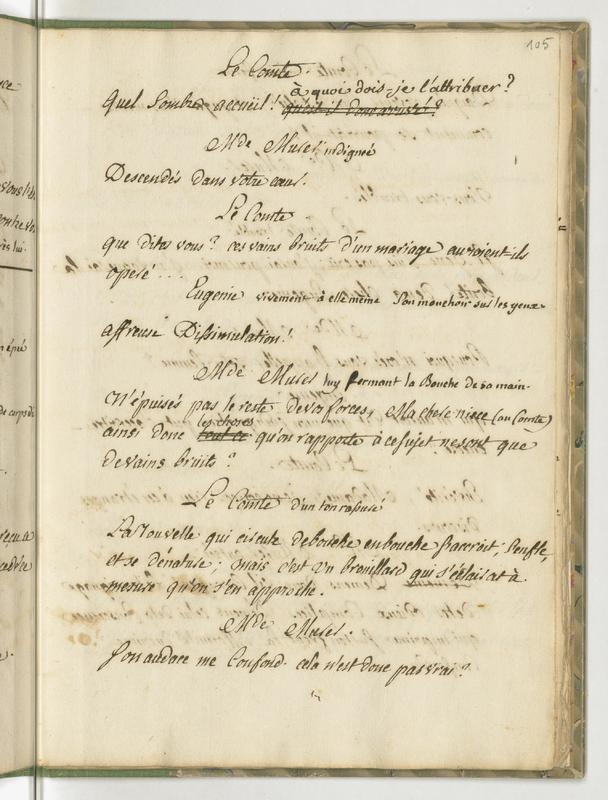 105
Le Comte.
à quoi dois-je l'attribuer?
Quel Sombre accueil! qu'est il donc arrivé?
Mde Murer indignée
Descendés dans votre cœur.
Le Comte
que dites vous? ces vains bruits d'un mariage auroient-ils
operé ...
Eugenie vivement à elle même Son mouchoir sur les yeux
affreuse Dissimulation!
Mde Murer luy fermant la Bouche de sa main.
N'épuisés pas le reste de vos forces, Ma chere niece (au Comte)
les choses
ainsi donc tout ce qu'on rapporte à ce sujet ne sont que
de vains bruits?
Le Comte d'un ton rassuré
La Nouvelle qui circule de bouche en bouche s'accroit, s'enfle,
et se dénature; mais c'est un brouillard qui s'éclaircit à
mesure qu'on s'en approche.
Mde Murer.
Son audace me Confond. cela n'est donc pas vrai?